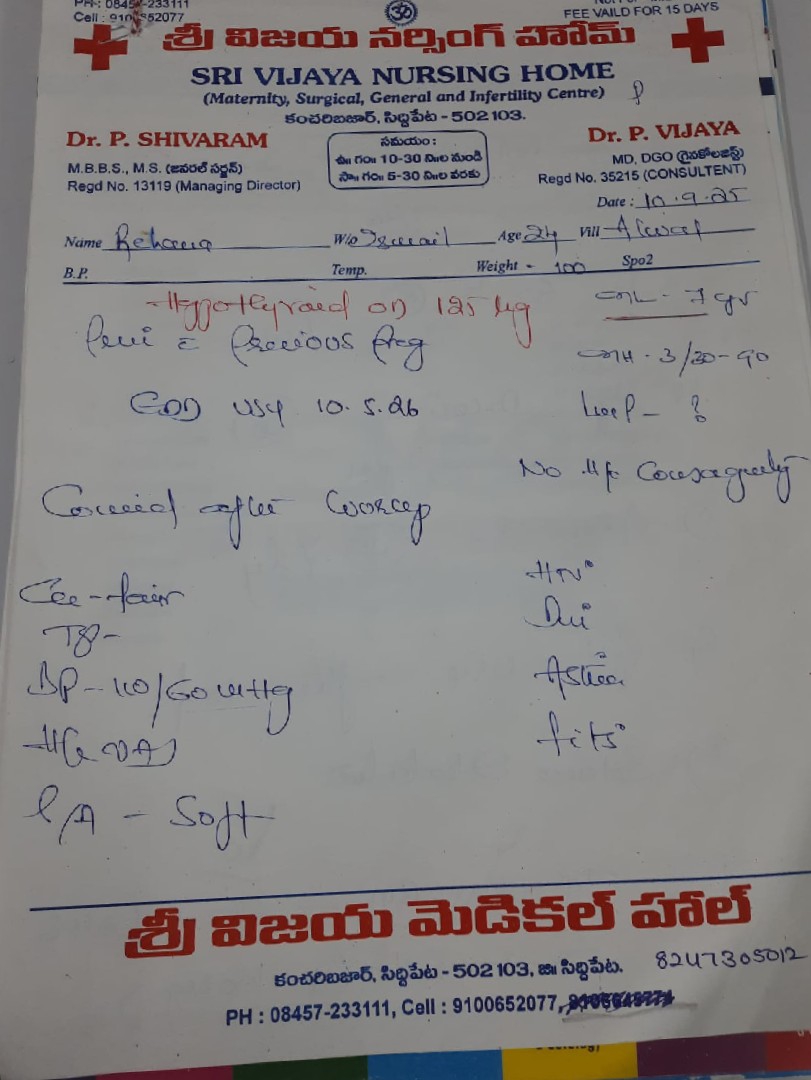 PH : 08457-233111
FEE VAILD FOR 15 DAYS
శ్రీ విజయ నర్సింగ్ హోమ్
SRI VIJAYA NURSING HOME
(Maternity, Surgical, General and Infertility Centre)
కంచరిబజార్, సిద్దిపేట - 502 103.
Dr. P. SHIVARAM
M.B.B.S., M.S. (జనరల్ సర్జన్)
Regd No. 13119 (Managing Director)
సమయం :
ఉ॥ గం॥ 10-30 ని॥ల నుండి
సా॥ గం॥ 5-30 ని॥ల వరకు
Dr. P. VIJAYA
MD, DGO (గైనకోలజిస్ట్)
Regd No. 35215 (CONSULTENT)
Date : 10.9.25
Name Rehana W/o Ismail Age 24 Vill
B.P. Temp. Weight - 100 Spo2
Hypothyroid on 125 µg
ML - 7 yr
Primi c Precious Preg
MH - 3/30-40
EDD USG 10.5.26
LMP - ?
No H/o
after
fair
BP - 110/60 mmHg
fits°
P/A - Soft
శ్రీ విజయ మెడికల్ హాల్
కంచరిబజార్, సిద్దిపేట - 502 103, జి॥ సిద్దిపేట. 8247305012
PH : 08457-233111, Cell : 9100652077,